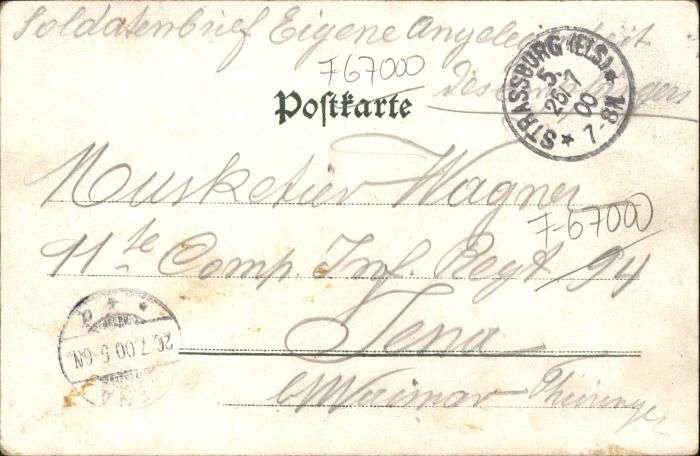 Soldatenbrief Eigene Angelegenheit
des Empfängers
767000
Postkarte
STRASSBURG (ELS) 5.
25.7
00
7-8N
Musketier Wagner
7-67000
11te Comp. Inf. Regt. 94
Jena
26.7.00.5-6N.
b/Weimar Thüringen